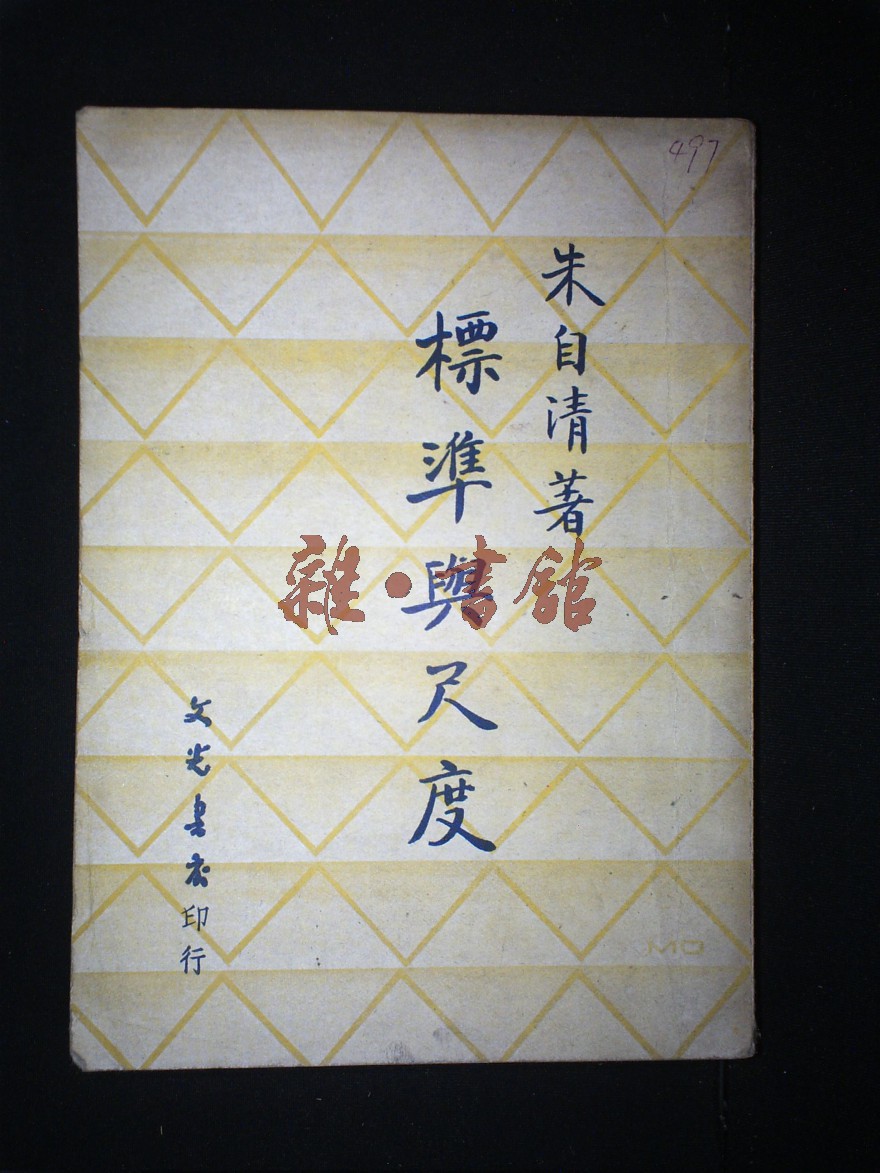 497
朱自清著
標準與尺度
文光書店印行
MO
雜·書館